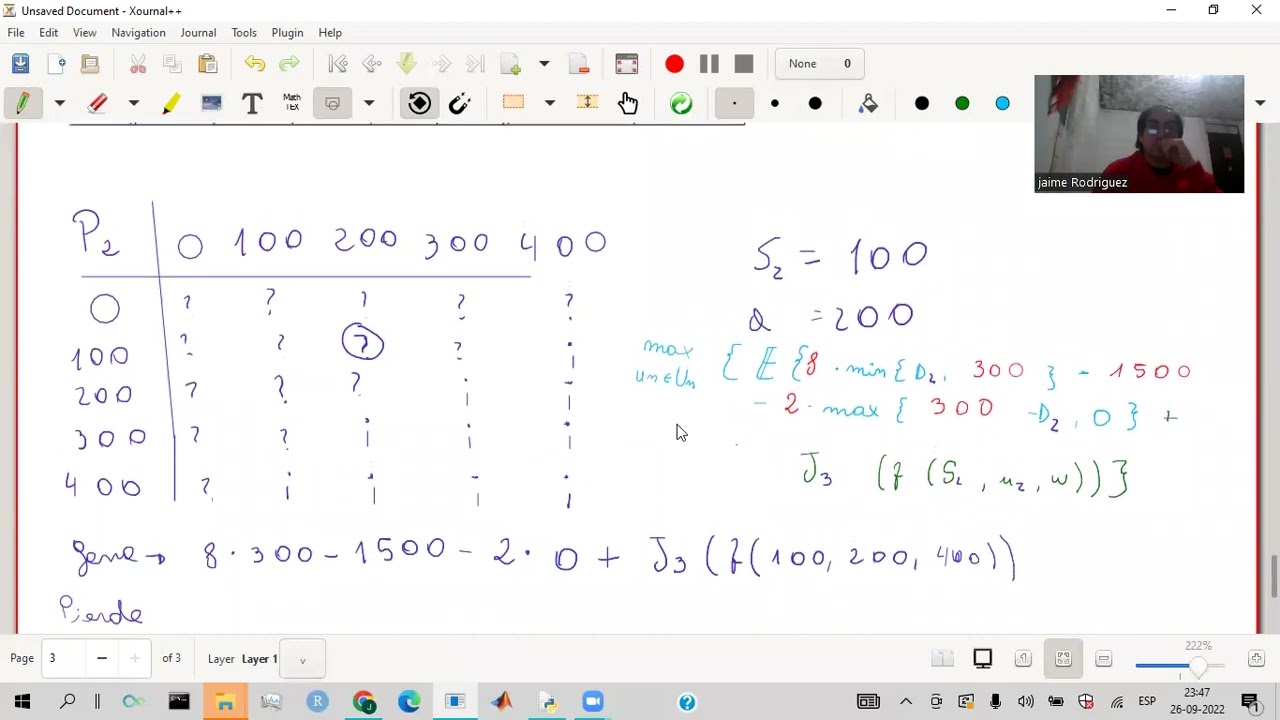 Unsaved Document - Xournal++
File Edit View Navigation Journal Tools Plugin Help
None 0
T Math TEX
jaime Rodriguez
P2 0 100 200 300 400
0 ? ? ? ? ?
100 ? ? ? ?
200 ? ? ?
300 ? ?
400 ?
S2 = 100
= 200
max un∈Un { E {8 · min{ D2, 300 } - 1500
- 2 · max { 300 - D2, 0 } +
J3 (f (S2, u2, w)) }
gana → 8 · 300 - 1500 - 2 · 0 + J3 (f(100, 200, 400))
Pierde
Page 3 of 3 Layer Layer 1 222%
ESP 23:47
26-09-2022